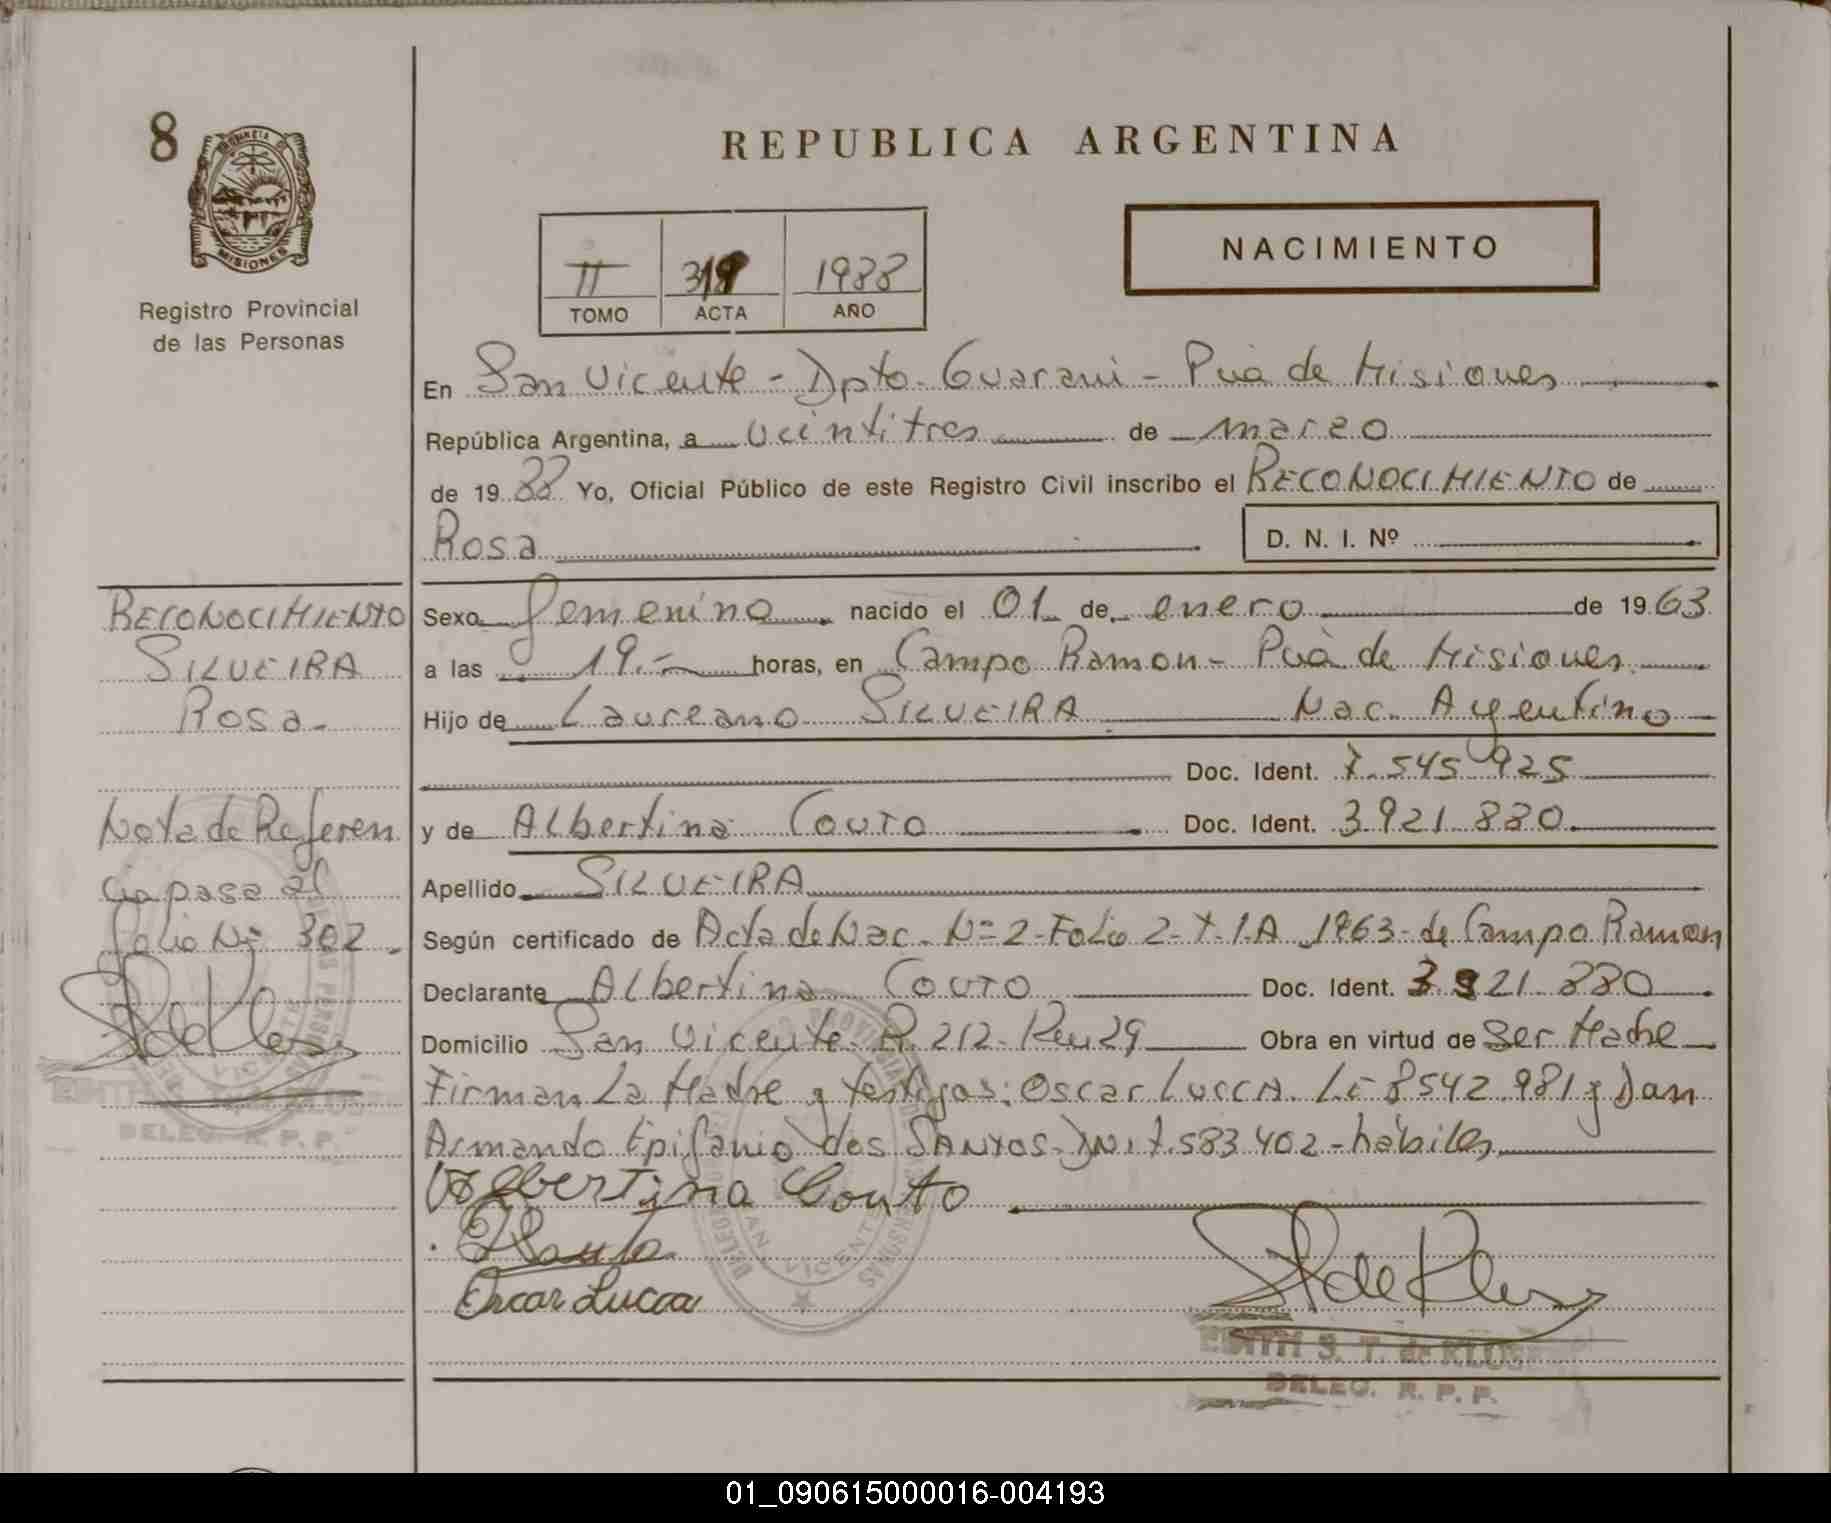 8
PROVINCIA DE
MISIONES
Registro Provincial
de las Personas
REPUBLICA ARGENTINA
NACIMIENTO
II 319 1988
TOMO ACTA AÑO
En San Vicente - Dpto. Guarani - Pcia de Misiones
República Argentina, a veintitres de marzo
de 19 88 Yo, Oficial Público de este Registro Civil inscribo el RECONOCIMIENTO de
Rosa
D. N. I. Nº
RECONOCIMIENTO
SILVEIRA
Rosa-
Nota de Referen
cia pasa al
folio Nº 302.
Sexo femenino nacido el 01 de enero de 1963
a las 19.- horas, en Campo Ramon - Pcia de Misiones
Hijo de Laureano SILVEIRA Nac. Argentino
Doc. Ident. 7.545 925
y de Albertina COUTO Doc. Ident. 3.921.880
Apellido SILVEIRA
Según certificado de Acta de Nac. Nº 2 - Folio 2 - T. I. A 1963 - de Campo Ramon
Declarante Albertina COUTO Doc. Ident. 3.921.880
Domicilio San Vicente R. 212 - Km 29 Obra en virtud de ser Madre
Firman La Madre y testigos: Oscar LUCCA. LE 8542.981 y Dan
Armando Epifanio dos SANTOS - DNI 7.583.402 - hábiles
Albertina Couto
Oscar Lucca
EDITH S. T. de KLUS
DELEG. R. P. P.
DELEG. R. P. P.
SAN VICENTE
01_090615000016-004193